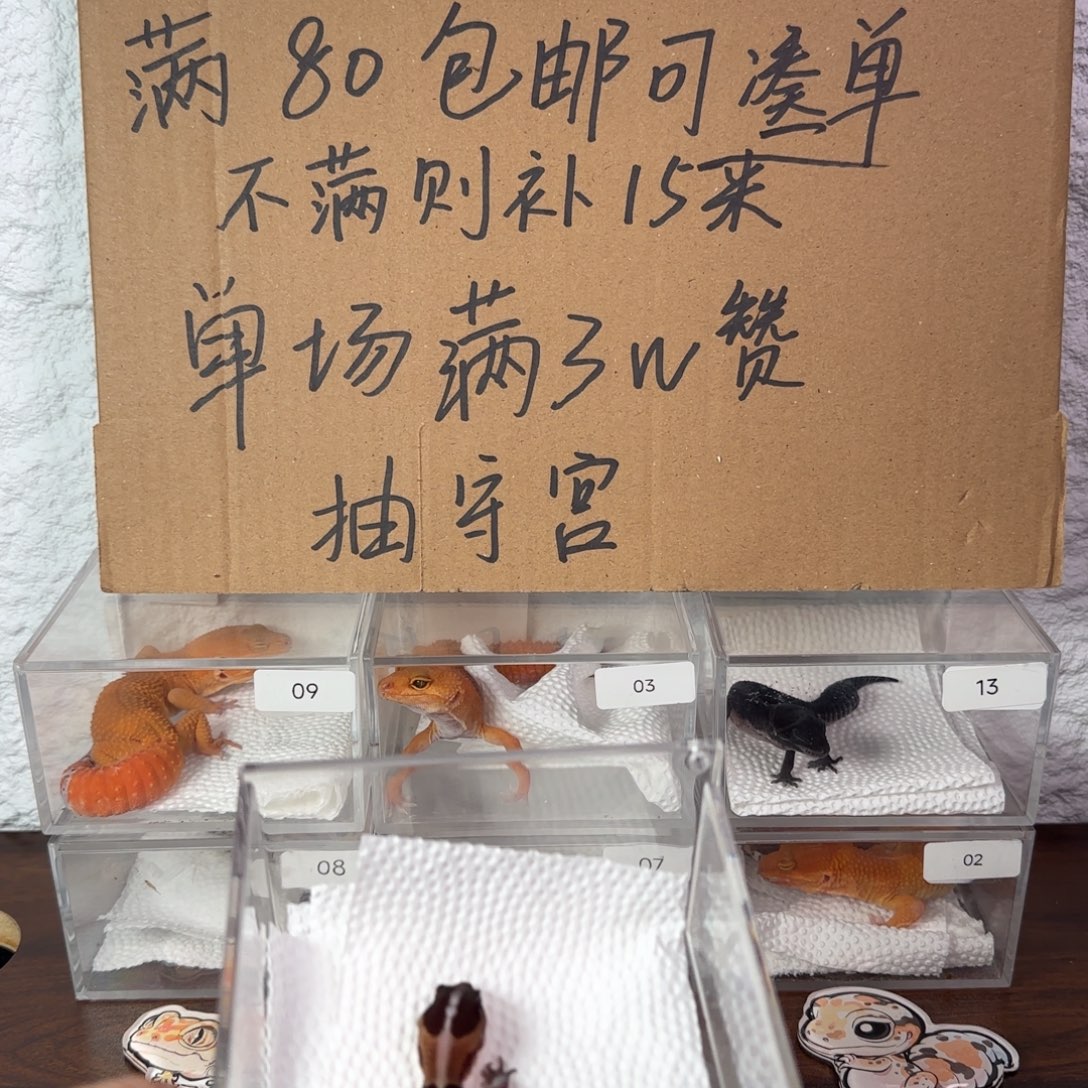 满80包邮可凑单
不满则补15来
单场满3W赞
抽守宫
09
03
13
08
07
02